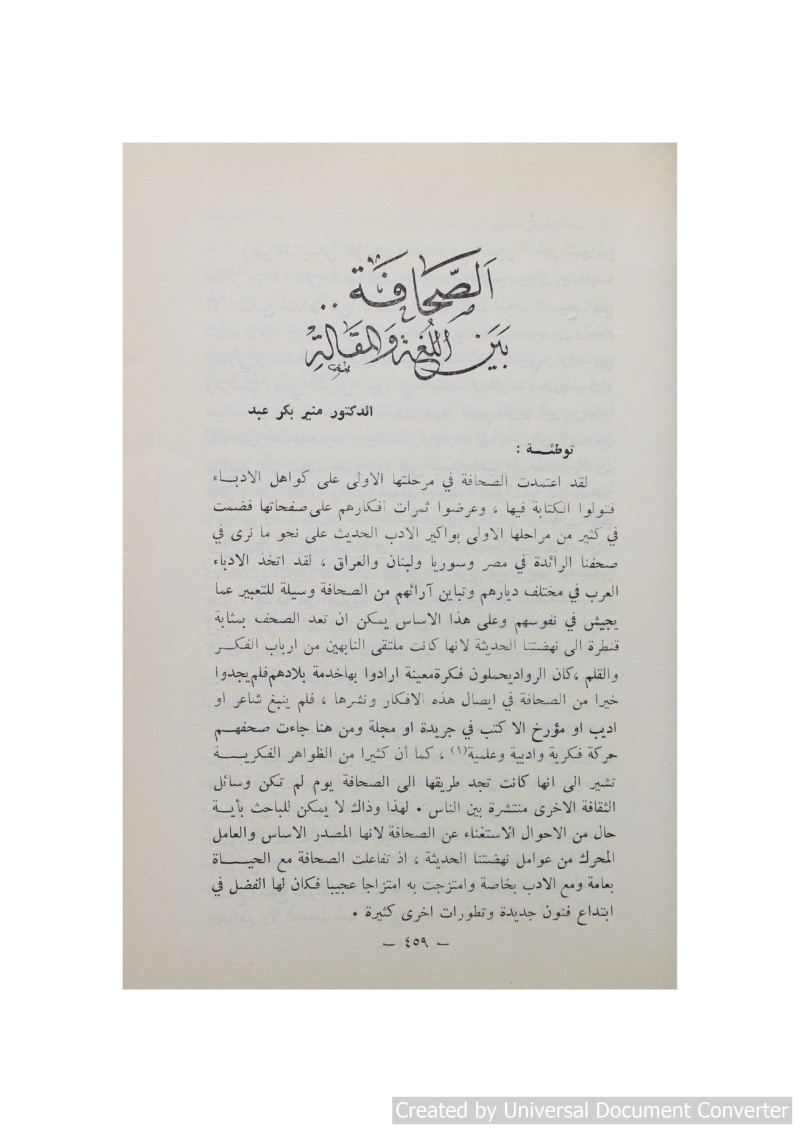 اَلصَّحَافَة ..
بَيَن اللُغَة وَالمقَالَةِ
الدكتور منير بكر عبد
توطئـــة :
لقد اعتمدت الصحافة في مرحلتها الاولى على كواهل الادبــاء
فتولوا الكتابة فيها ، وعرضوا ثمرات افكارهم على صفحاتها فضمت
في كثير من مراحلها الاولى بواكير الادب الحديث على نحو ما نرى في
صحفنا الرائدة في مصر وسوريا ولبنان والعراق ، لقد اتخذ الادباء
العرب في مختلف ديارهم وتباين آرائهم من الصحافة وسيلة للتعبير عما
يجيش في نفوسهم وعلى هذا الاساس يمكن ان تعد الصحف بمثابة
قنطرة الى نهضتنا الحديثة لانها كانت ملتقى النابهين من ارباب الفكـر
والقلم ،كان الرواديحملون فكرةمعينة ارادوا بهاخدمة بلادهمفلم يجدوا
خيرا من الصحافة في ايصال هذه الافكار ونشرها ، فلم ينبغ شاعر او
اديب او مؤرخ الا كتب في جريدة او مجلة ومن هنا جاءت صحفهــم
حركة فكرية وادبية وعلمية(١) ، كما أن كثيرا من الظواهر الفكريــة
تشير الى انها كانت تجد طريقها الى الصحافة يوم لم تكن وسائل
الثقافة الاخرى منتشرة بين الناس • لهذا وذاك لا يمكن للباحث بأيــة
حال من الاحوال الاستغناء عن الصحافة لانها المصدر الاساس والعامل
المحرك من عوامل نهضتنا الحديثة ، اذ تفاعلت الصحافة مع الحيــــاة
بعامة ومع الادب بخاصة وامتزجت به امتزاجا عجيبا فكان لها الفضل في
ابتداع فنون جديدة وتطورات اخرى كثيرة •
— ٤٥٩ —
Created by Universal Document Converter